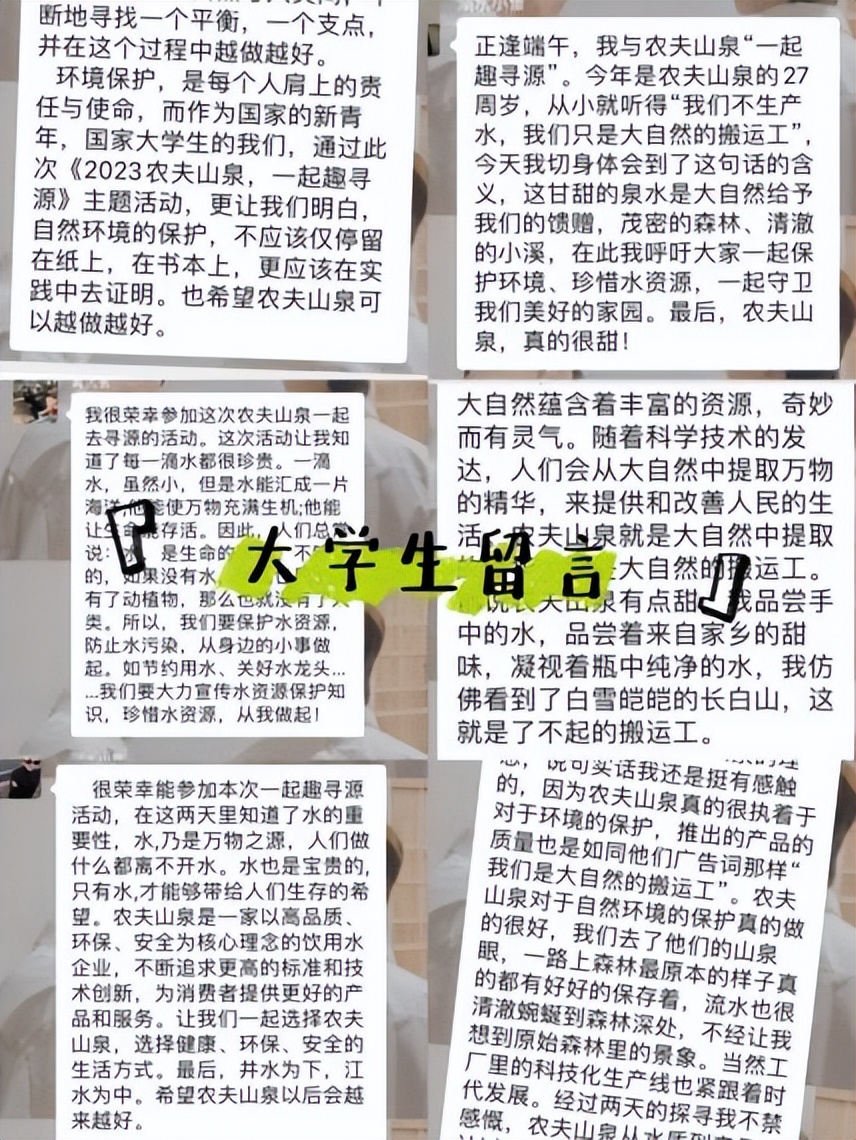 断地寻找一个平衡，一个支点，
并在这个过程中越做越好。
环境保护，是每个人肩上的责
任与使命，而作为国家的新青
年，国家大学生的我们，通过此
次《2023农夫山泉，一起趣寻
源》主题活动，更让我们明白，
自然环境的保护，不应该仅停留
在纸上，在书本上，更应该在实
践中去证明。也希望农夫山泉可
以越做越好。
正逢端午，我与农夫山泉“一起
趣寻源”。今年是农夫山泉的27
周岁，从小就听得“我们不生产
水，我们只是大自然的搬运工”，
今天我切身体会到了这句话的含
义，这甘甜的泉水是大自然给予
我们的馈赠，茂密的森林、清澈
的小溪，在此我呼吁大家一起保
护环境、珍惜水资源，一起守卫
我们美好的家园。最后，农夫山
泉，真的很甜！
我很荣幸参加这次农夫山泉一起
去寻源的活动。这次活动让我知
道了每一滴水都很珍贵。一滴
水，虽然小，但是水能汇成一片
海洋，他能使万物充满生机;他能
让生命存活。因此，人们总
说：水，是生命的
的，如果没有水
有了动植物，那么也就没有了人
类。所以，我们要保护水资源，
防止水污染，从身边的小事做
起。如节约用水、关好水龙头...
...我们要大力宣传水资源保护知
识，珍惜水资源，从我做起！
大自然蕴含着丰富的资源，奇妙
而有灵气。随着科学技术的发
达，人们会从大自然中提取万物
的精华，来提供和改善人民的生
活。农夫山泉就是大自然中提取
大自然的搬运工。
说农夫山泉有点甜，我品尝手
中的水，品尝着来自家乡的甜
味，凝视着瓶中纯净的水，我仿
佛看到了白雪皑皑的长白山，这
就是了不起的搬运工。
『大学生留言』
很荣幸能参加本次一起趣寻源
活动，在这两天里知道了水的重
要性，水,乃是万物之源，人们做
什么都离不开水。水也是宝贵的,
只有水,才能够带给人们生存的希
望。农夫山泉是一家以高品质、
环保、安全为核心理念的饮用水
企业，不断追求更高的标准和技
术创新，为消费者提供更好的产
品和服务。让我们一起选择农夫
山泉，选择健康、环保、安全的
生活方式。最后，井水为下，江
水为中。希望农夫山泉以后会越
来越好。
说句实话我还是挺有感触
的，因为农夫山泉真的很执着于
对于环境的保护，推出的产品的
质量也是如同他们广告词那样“
我们是大自然的搬运工”。农夫
山泉对于自然环境的保护真的做
的很好，我们去了他们的山泉
眼，一路上森林最原本的样子真
的都有好好的保存着，流水也很
清澈蜿蜒到森林深处，不经让我
想到原始森林里的景象。当然工
厂里的科技化生产线也紧跟着时
代发展。经过两天的探寻我不禁
感慨，农夫山泉从水质到